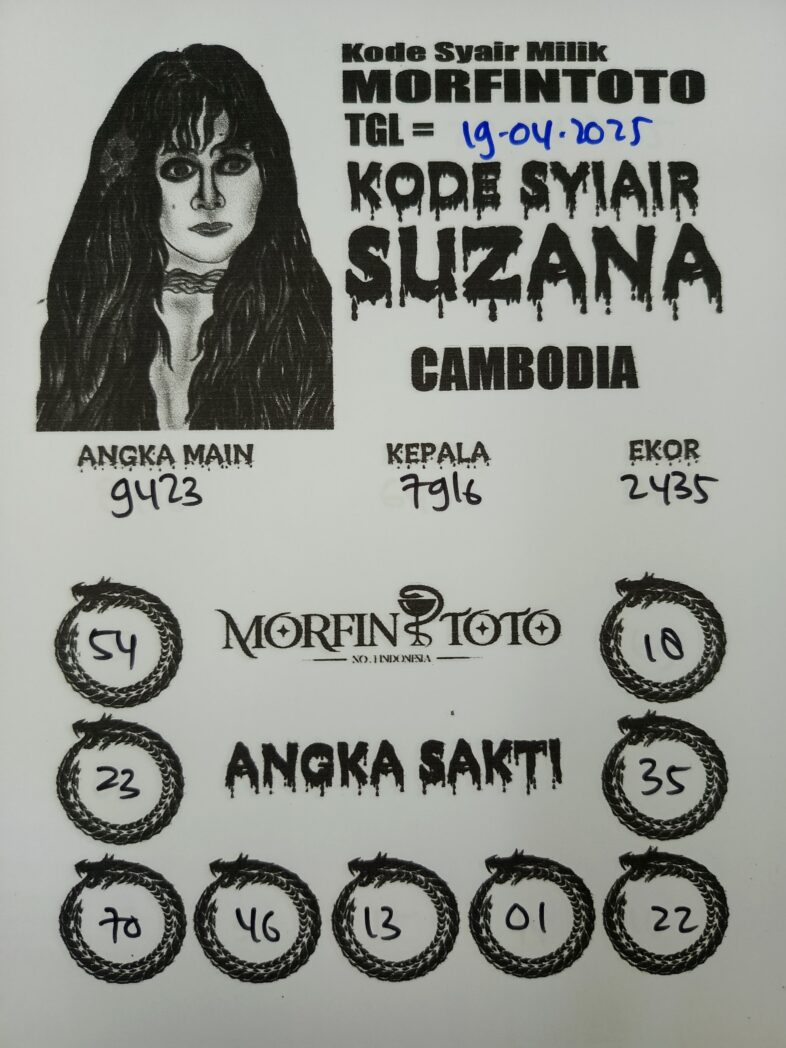 Kode Syair Milik
MORFINTOTO
TGL = 19-04-2025
KODE SYIAIR
SUZANA
CAMBODIA
ANGKA MAIN KEPALA EKOR
9423 7916 2435
54 MORFIN TOTO 18
NO.1 INDONESIA
23 ANGKA SAKTI 35
70 46 13 01 22